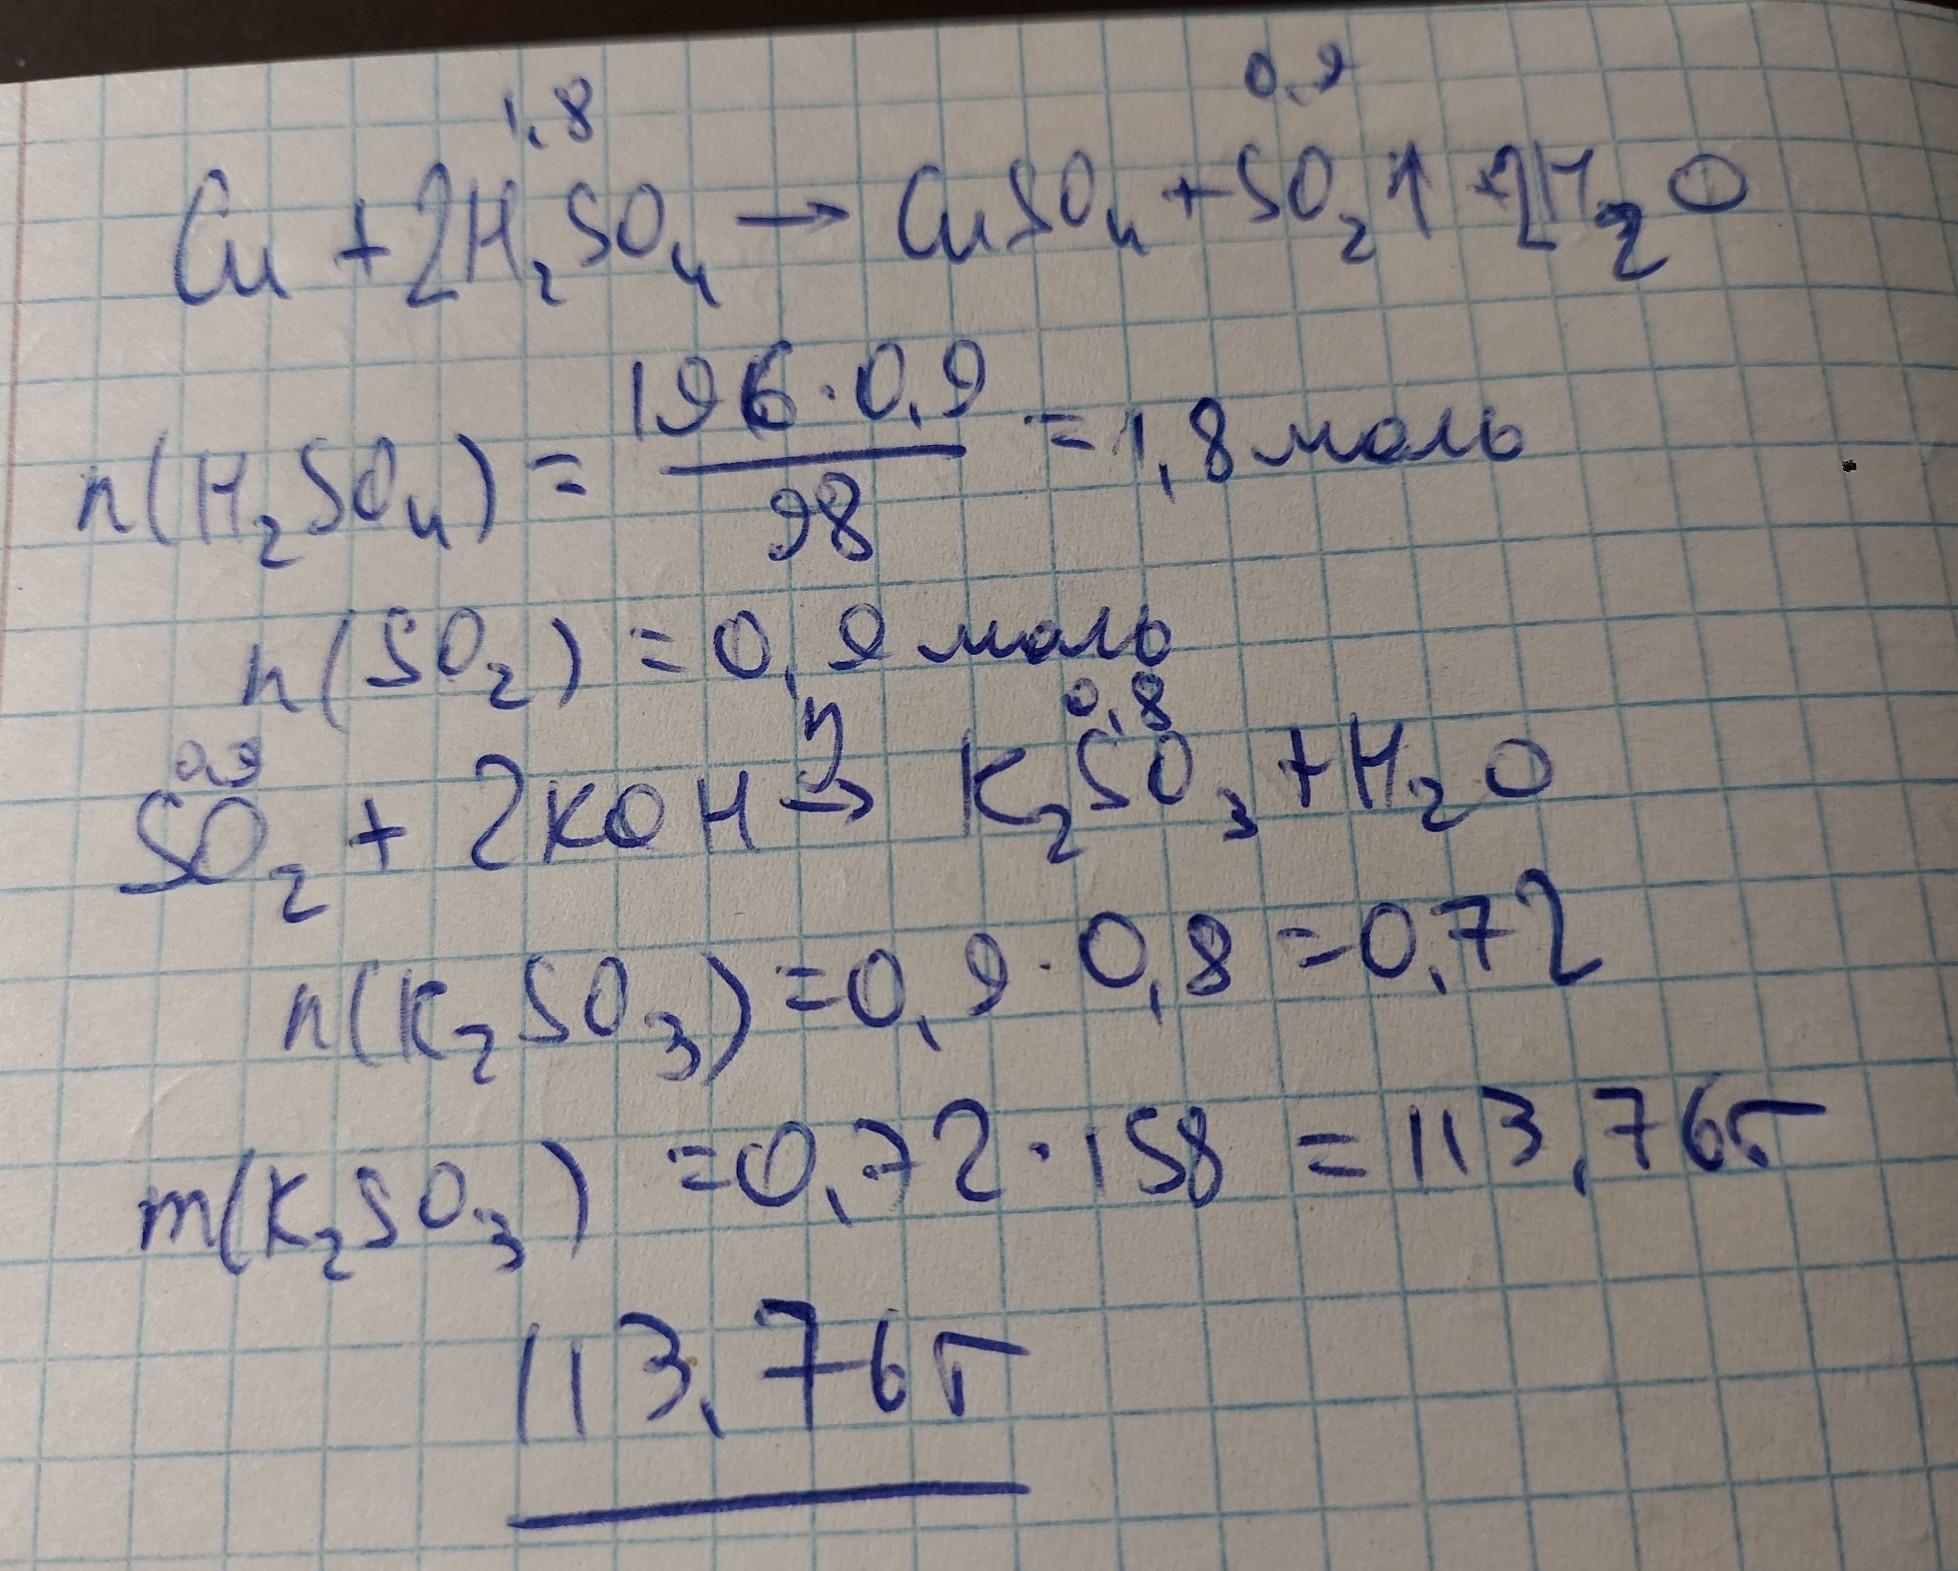 1,8 0,9
Cu + 2H₂SO₄ → CuSO₄ + SO₂↑ + 2H₂O
n(H₂SO₄) = 196·0,9 / 98 = 1,8 моль
n(SO₂) = 0,9 моль
0,9 η 0,8
SO₂ + 2KOH → K₂SO₃ + H₂O
n(K₂SO₃) = 0,9 · 0,8 = 0,72
m(K₂SO₃) = 0,72 · 158 = 113,76г
113,76г